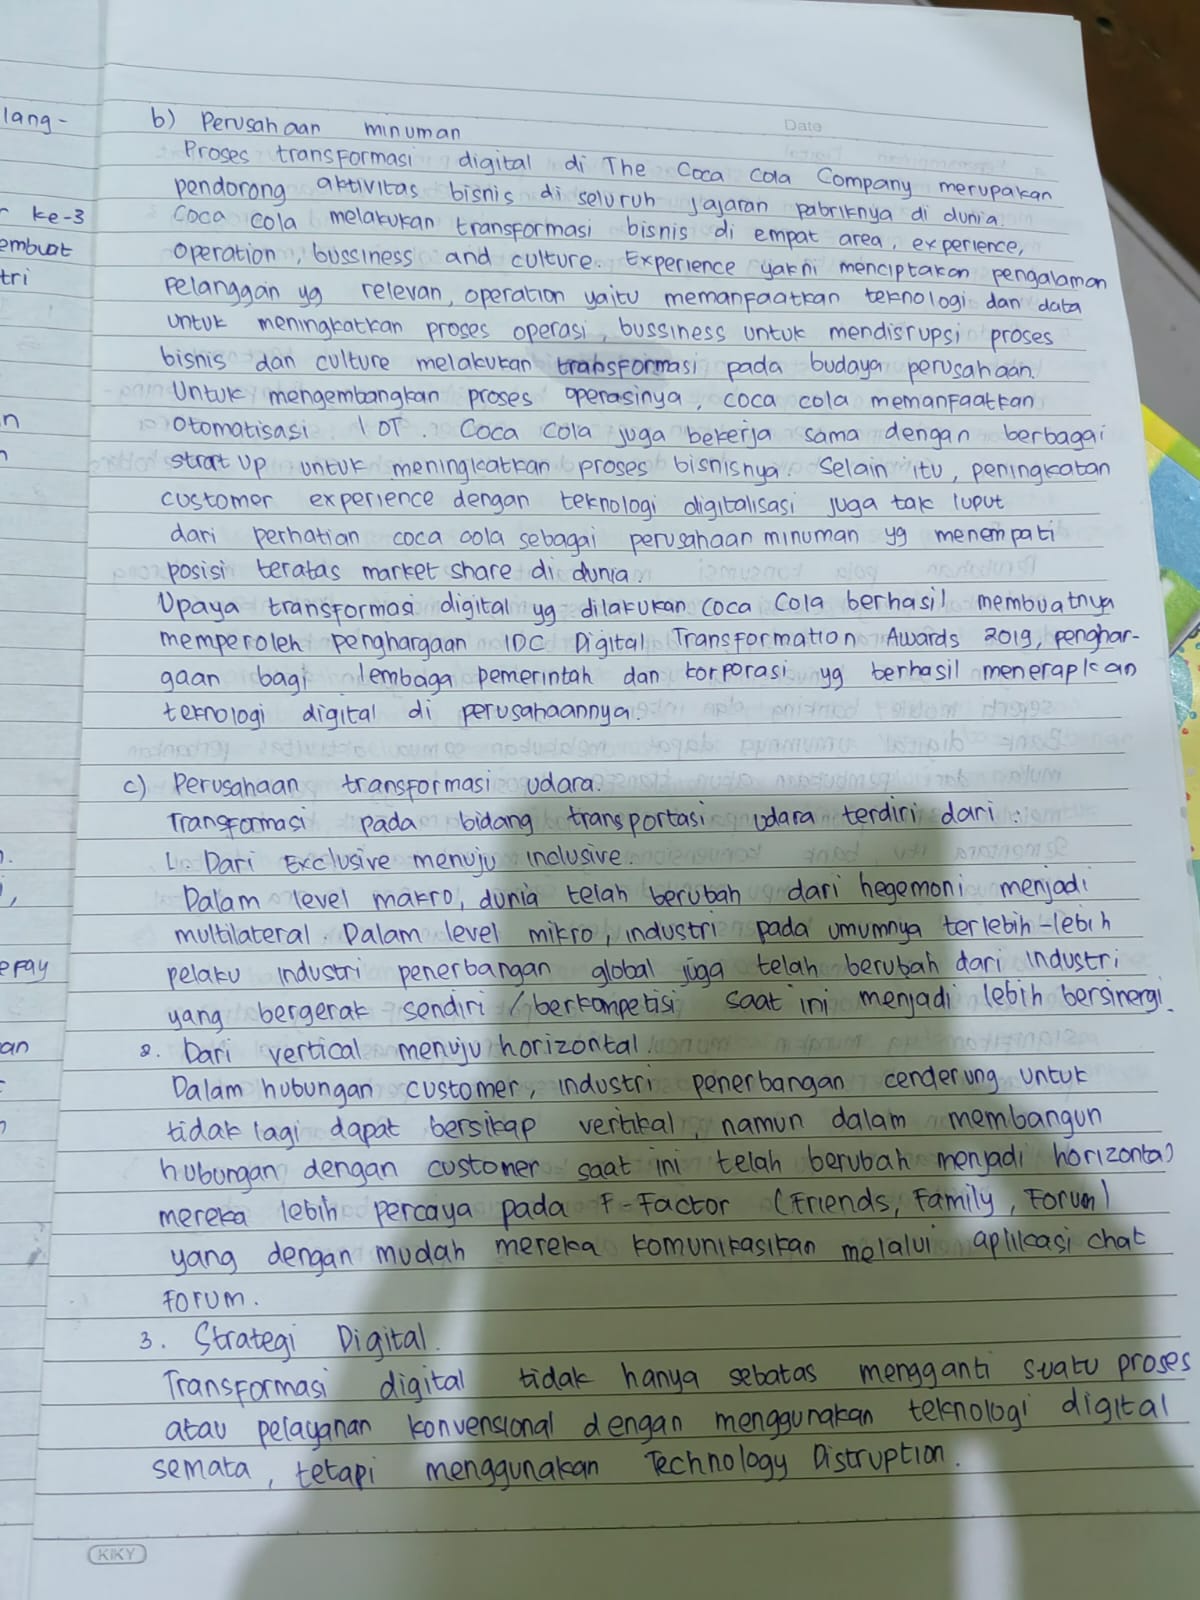 lang-
r ke-3
embuat
tri
n
epay
an
Date
b) Perusahaan minuman
Proses transformasi digital di The Coca Cola Company merupakan
pendorong aktivitas bisnis di seluruh jajaran pabriknya di dunia.
Coca cola melakukan transformasi bisnis di empat area, experience,
operation, bussiness and culture. Experience yakni menciptakan pengalaman
pelanggan yg relevan, operation yaitu memanfaatkan teknologi dan data
untuk meningkatkan proses operasi, bussiness untuk mendisrupsi proses
bisnis dan culture melakukan transformasi pada budaya perusahaan.
Untuk mengembangkan proses operasinya, coca cola memanfaatkan
otomatisasi IOT. Coca Cola juga bekerja sama dengan berbagai
strat up untuk meningkatkan proses bisnisnya. Selain itu, peningkatan
customer experience dengan teknologi digitalisasi juga tak luput
dari perhatian coca cola sebagai perusahaan minuman yg menempati
posisi teratas market share di dunia.
Upaya transformasi digital yg dilakukan Coca Cola berhasil membuatnya
memperoleh penghargaan IDC Digital Transformation Awards 2019, penghar-
gaan bagi lembaga pemerintah dan korporasi yg berhasil menerapkan
teknologi digital di perusahaannya.
c) Perusahaan transformasi udara.
Transformasi pada bidang transportasi udara terdiri dari :
1. Dari Exclusive menuju inclusive.
Dalam level makro, dunia telah berubah dari hegemoni menjadi
multilateral. Dalam level mikro, industri pada umumnya terlebih-lebih
pelaku industri penerbangan global juga telah berubah dari industri
yang bergerak sendiri / berkompetisi saat ini menjadi lebih bersinergi.
2. Dari vertical menuju horizontal.
Dalam hubungan customer, industri penerbangan cenderung untuk
tidak lagi dapat bersikap vertikal, namun dalam membangun
hubungan dengan customer saat ini telah berubah menjadi horizontal
mereka lebih percaya pada F-Factor (Friends, Family, Forum)
yang dengan mudah mereka komunikasikan melalui aplikasi chat
forum.
3. Strategi Digital.
Transformasi digital tidak hanya sebatas mengganti suatu proses
atau pelayanan konvensional dengan menggunakan teknologi digital
semata, tetapi menggunakan Technology Distruption.
KIKY